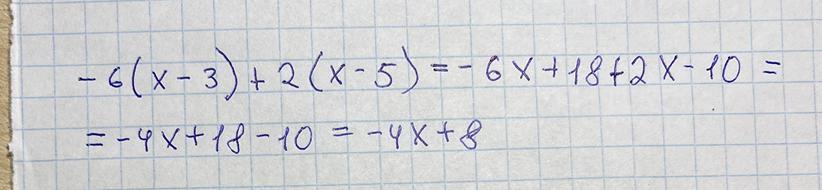 -6(x-3)+2(x-5)=-6x+18+2x-10=
=-4x+18-10=-4x+8